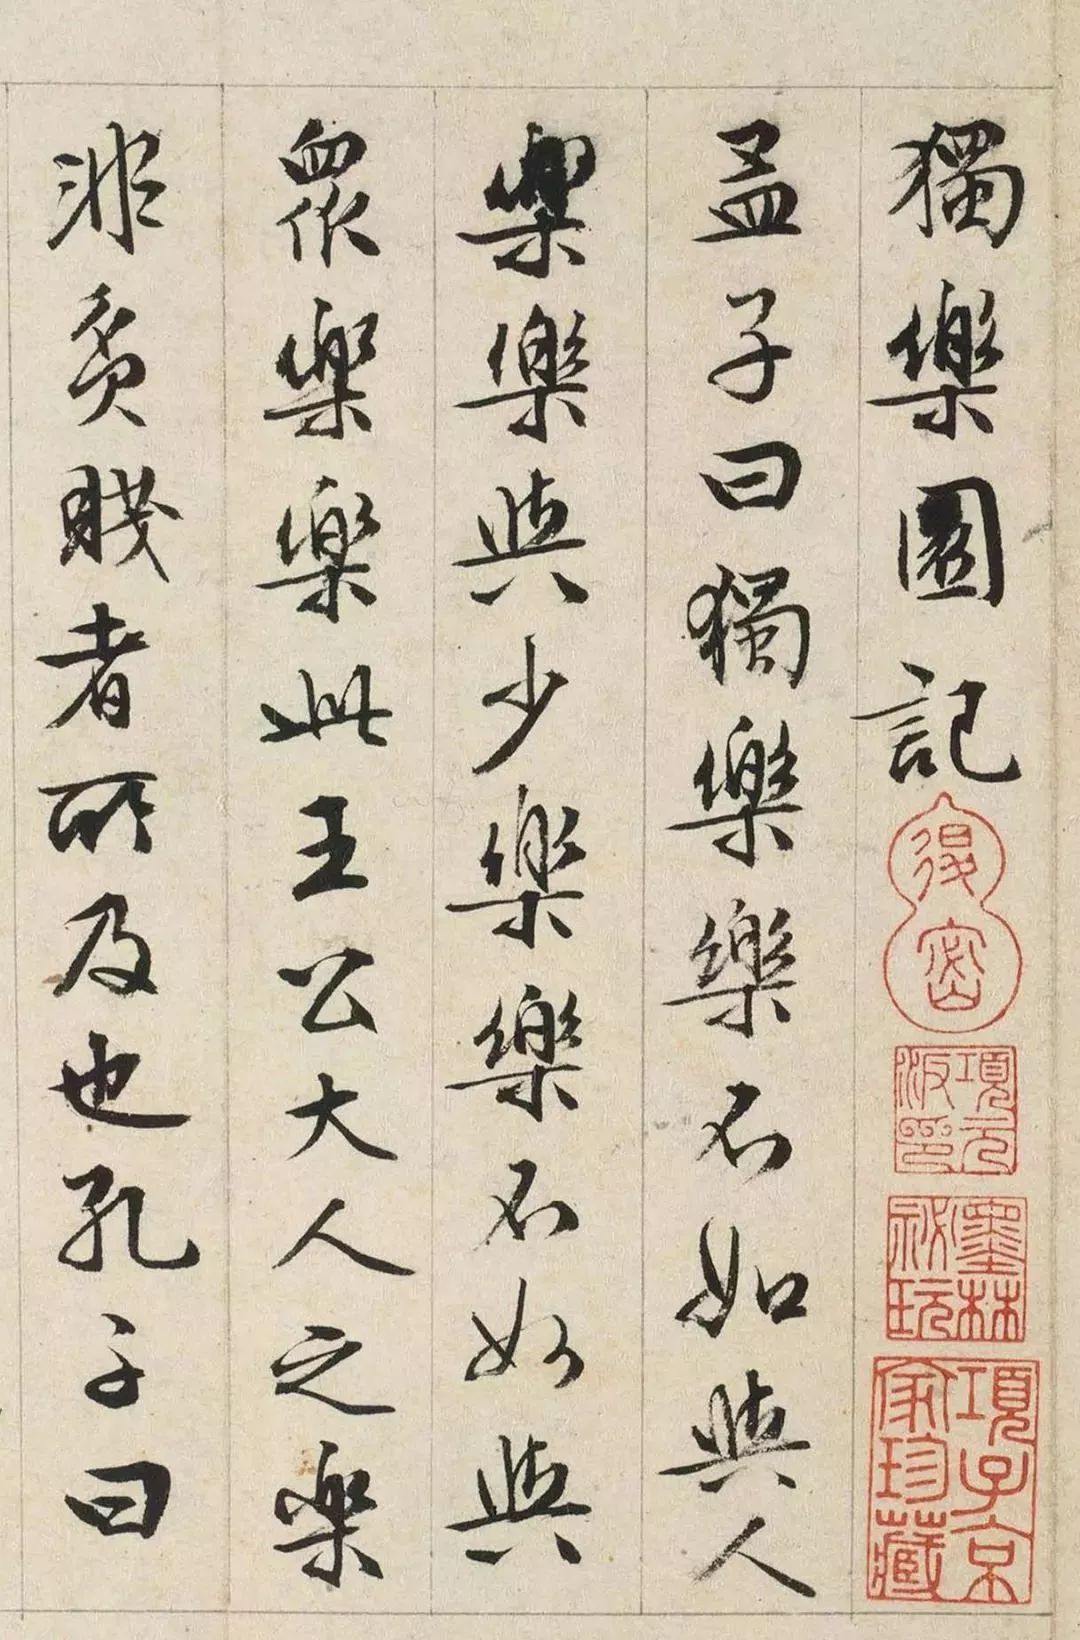 獨樂園記
孟子曰獨樂樂不如與人
樂樂與少樂樂不如與
眾樂樂此王公大人之樂
非貧賤者所及也孔子曰
項元汴印
墨林祕玩
項子京家珍藏